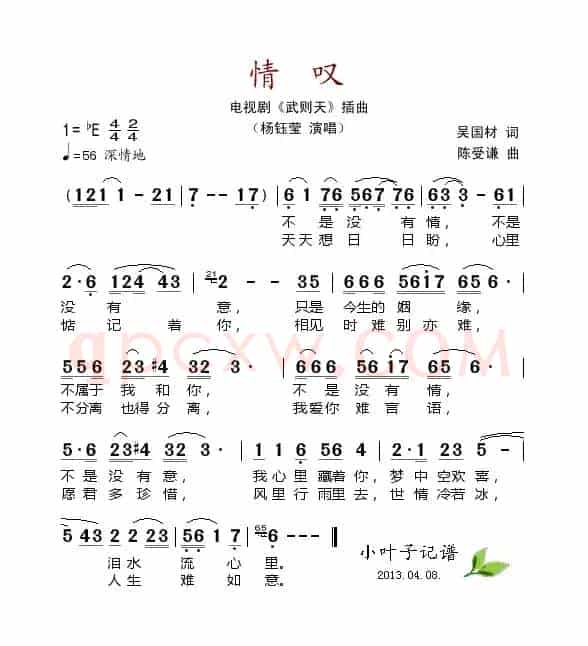 情 叹
电视剧《武则天》插曲
(杨钰莹 演唱)
1= ♭E 4/4 2/4
吴国材 词
♩=56 深情地
陈受谦 曲
( 121 1 - 21 | 7 - - 17 ) | 6 1 76 567 76 | 63 3 - 61 |
不 是 没 有 情， 不是
天 天 想 日 日 盼， 心里
2· 6 124 43 | 21 2 - - 35 | 666 5617 65 6· |
没 有 意， 只是 今生的 姻 缘，
惦 记 着 你， 相见 时 难 别 亦 难，
556 23 #4 32 3· | 666 5617 65 6· |
不属于 我 和 你， 不 是 没 有 情，
不分离 也得 分 离， 我爱你 难 言 语，
5·6 23#4 32 3· | 11 6 56 4 | 2·1 23 5 |
不 是 没 有 意， 我 心 里 藏着 你， 梦 中 空欢 喜，
愿 君 多 珍 惜， 风里 行 雨里 去， 世 情 冷若 冰，
5 43 2 2 23 | 56 1 7 | 65 6 - - ‖
泪 水 流 心 里。
人 生 难 如 意。
小叶子记谱
2013.04.08.
qpcxw.COM